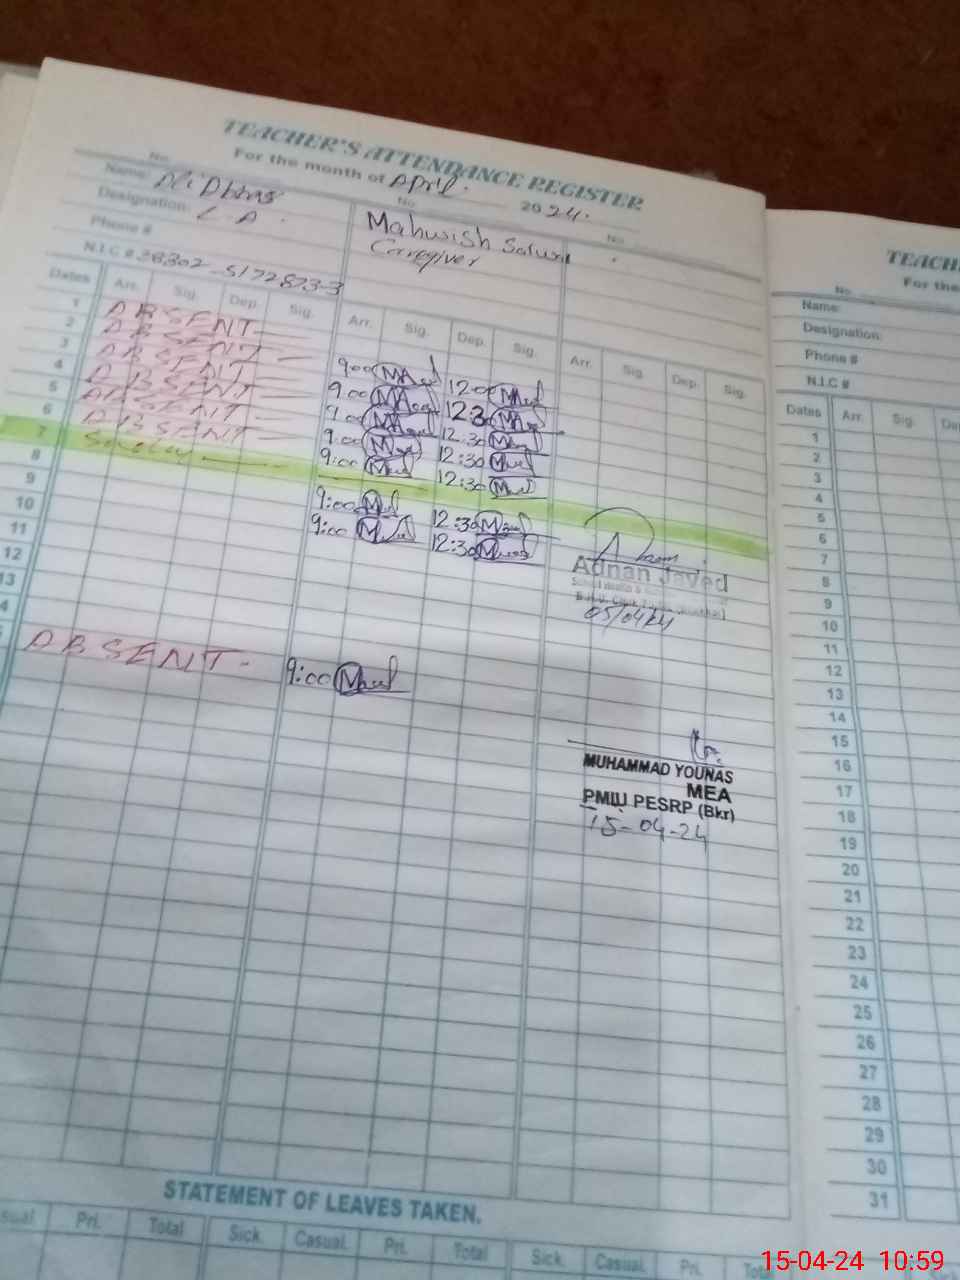 TEACHER'S ATTENDANCE REGISTER
For the month of April 2024.
No. No. No.
Name: Ali
Designation: L A.
Mahwish
Caregiver
Phone #
N.I.C # 38302-5172873-3
Dates Arr. Sig. Dep. Sig. Arr. Sig. Dep. Sig. Arr. Sig. Dep. Sig.
1 ABSENT
2 ABSENT 9:00 12:00
3 ABSENT 9:00 12:30
4 ABSENT 9:00 12:30
5 ABSENT 9:00 12:30
6 ABSENT 9:00 12:30
7 Sunday
8 9:00 12:30
9 9:00 12:30
10
11
12
13
4
ABSENT. 9:00
Adnan Javed
05/04/24
MUHAMMAD YOUNAS
MEA
PMIU PESRP (Bkr)
15-04-24
STATEMENT OF LEAVES TAKEN.
Casual Pri. Total Sick. Casual. Pri. Total Sick. Casual. Pri. Total
TEACH
For the
No.
Name:
Designation:
Phone #
N.I.C #
Dates Arr. Sig. Dep
1
2
3
4
5
6
7
8
9
10
11
12
13
14
15
16
17
18
19
20
21
22
23
24
25
26
27
28
29
30
31
15-04-24 10:59